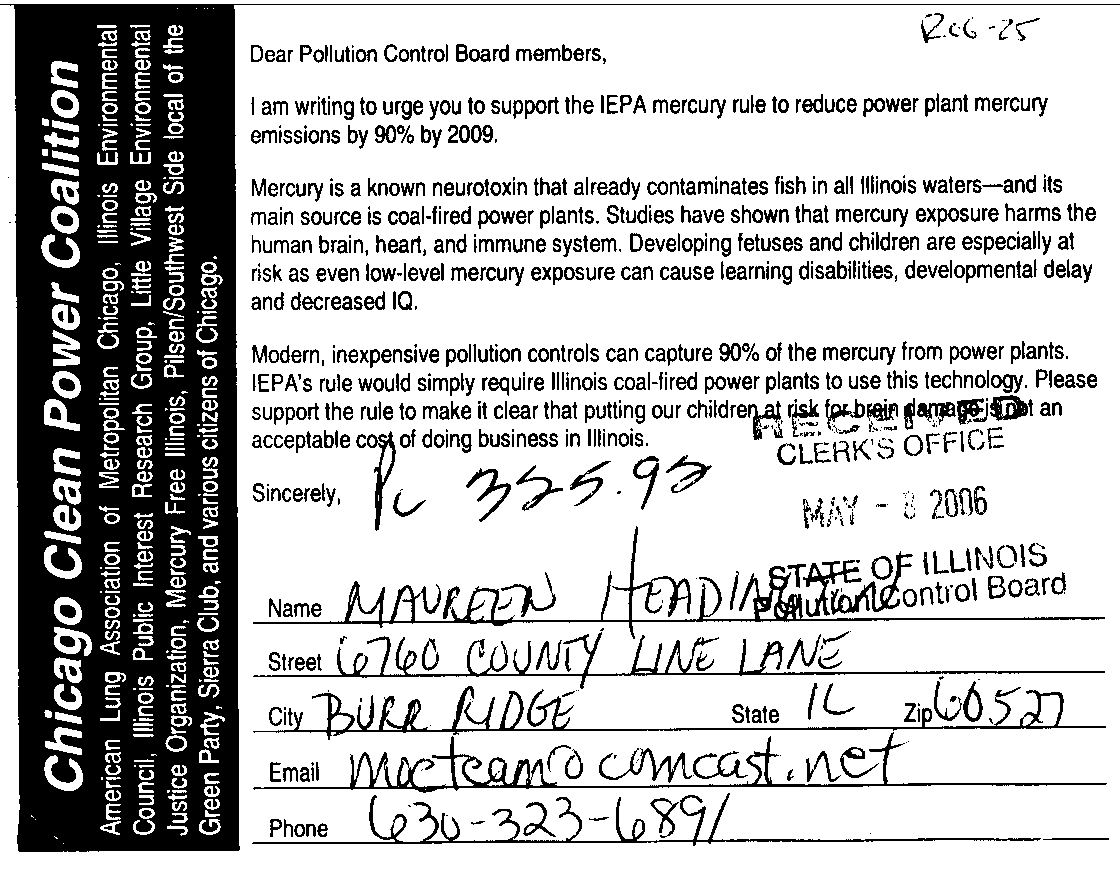 R06-25
Chicago Clean Power Coalition
American Lung Association of Metropolitan Chicago, Illinois Environmental
Council, Illinois Public Interest Research Group, Little Village Environmental
Justice Organization, Mercury Free Illinois, Pilsen/Southwest Side local of the
Green Party, Sierra Club, and various citizens of Chicago.
Dear Pollution Control Board members,
I am writing to urge you to support the IEPA mercury rule to reduce power plant mercury
emissions by 90% by 2009.
Mercury is a known neurotoxin that already contaminates fish in all Illinois waters—and its
main source is coal-fired power plants. Studies have shown that mercury exposure harms the
human brain, heart, and immune system. Developing fetuses and children are especially at
risk as even low-level mercury exposure can cause learning disabilities, developmental delay
and decreased IQ.
Modern, inexpensive pollution controls can capture 90% of the mercury from power plants.
IEPA's rule would simply require Illinois coal-fired power plants to use this technology. Please
support the rule to make it clear that putting our children at risk for brain damage is not an
acceptable cost of doing business in Illinois.
RECEIVED
CLERK'S OFFICE
MAY - 8 2006
STATE OF ILLINOIS
Pollution Control Board
Sincerely,
Pc 325.92
Name MAUREEN HEADINGTON
Street 6760 COUNTY LINE LANE
City BURR RIDGE State IL Zip 60527
Email mocteam@comcast.net
Phone 630-323-6891